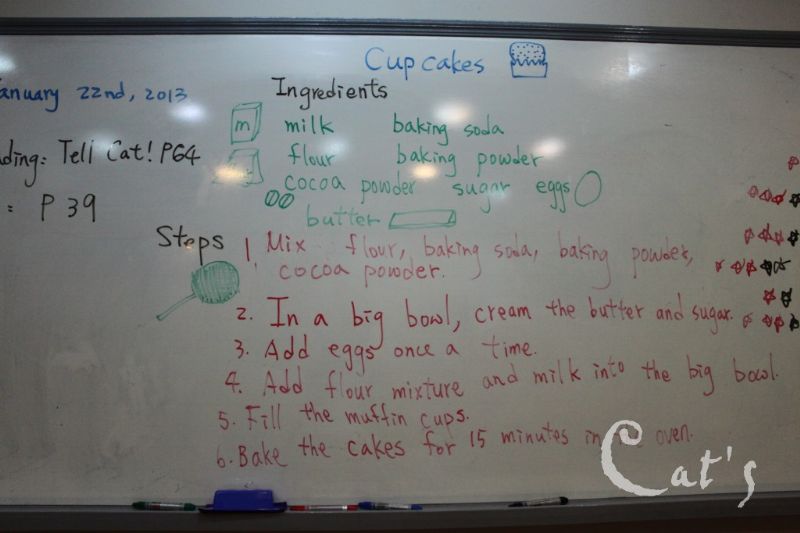 Cupcakes
anuary 22nd, 2013
Ingredients
m milk baking soda
ding: Tell Cat! P64
flour baking powder
cocoa powder sugar eggs
= P 39
butter
Steps
1. Mix flour, baking soda, baking powder,
cocoa powder.
2. In a big bowl, cream the butter and sugar.
3. Add eggs once a time.
4. Add flour mixture and milk into the big bowl.
5. Fill the muffin cups.
6. Bake the cakes for 15 minutes in oven.
Cat's